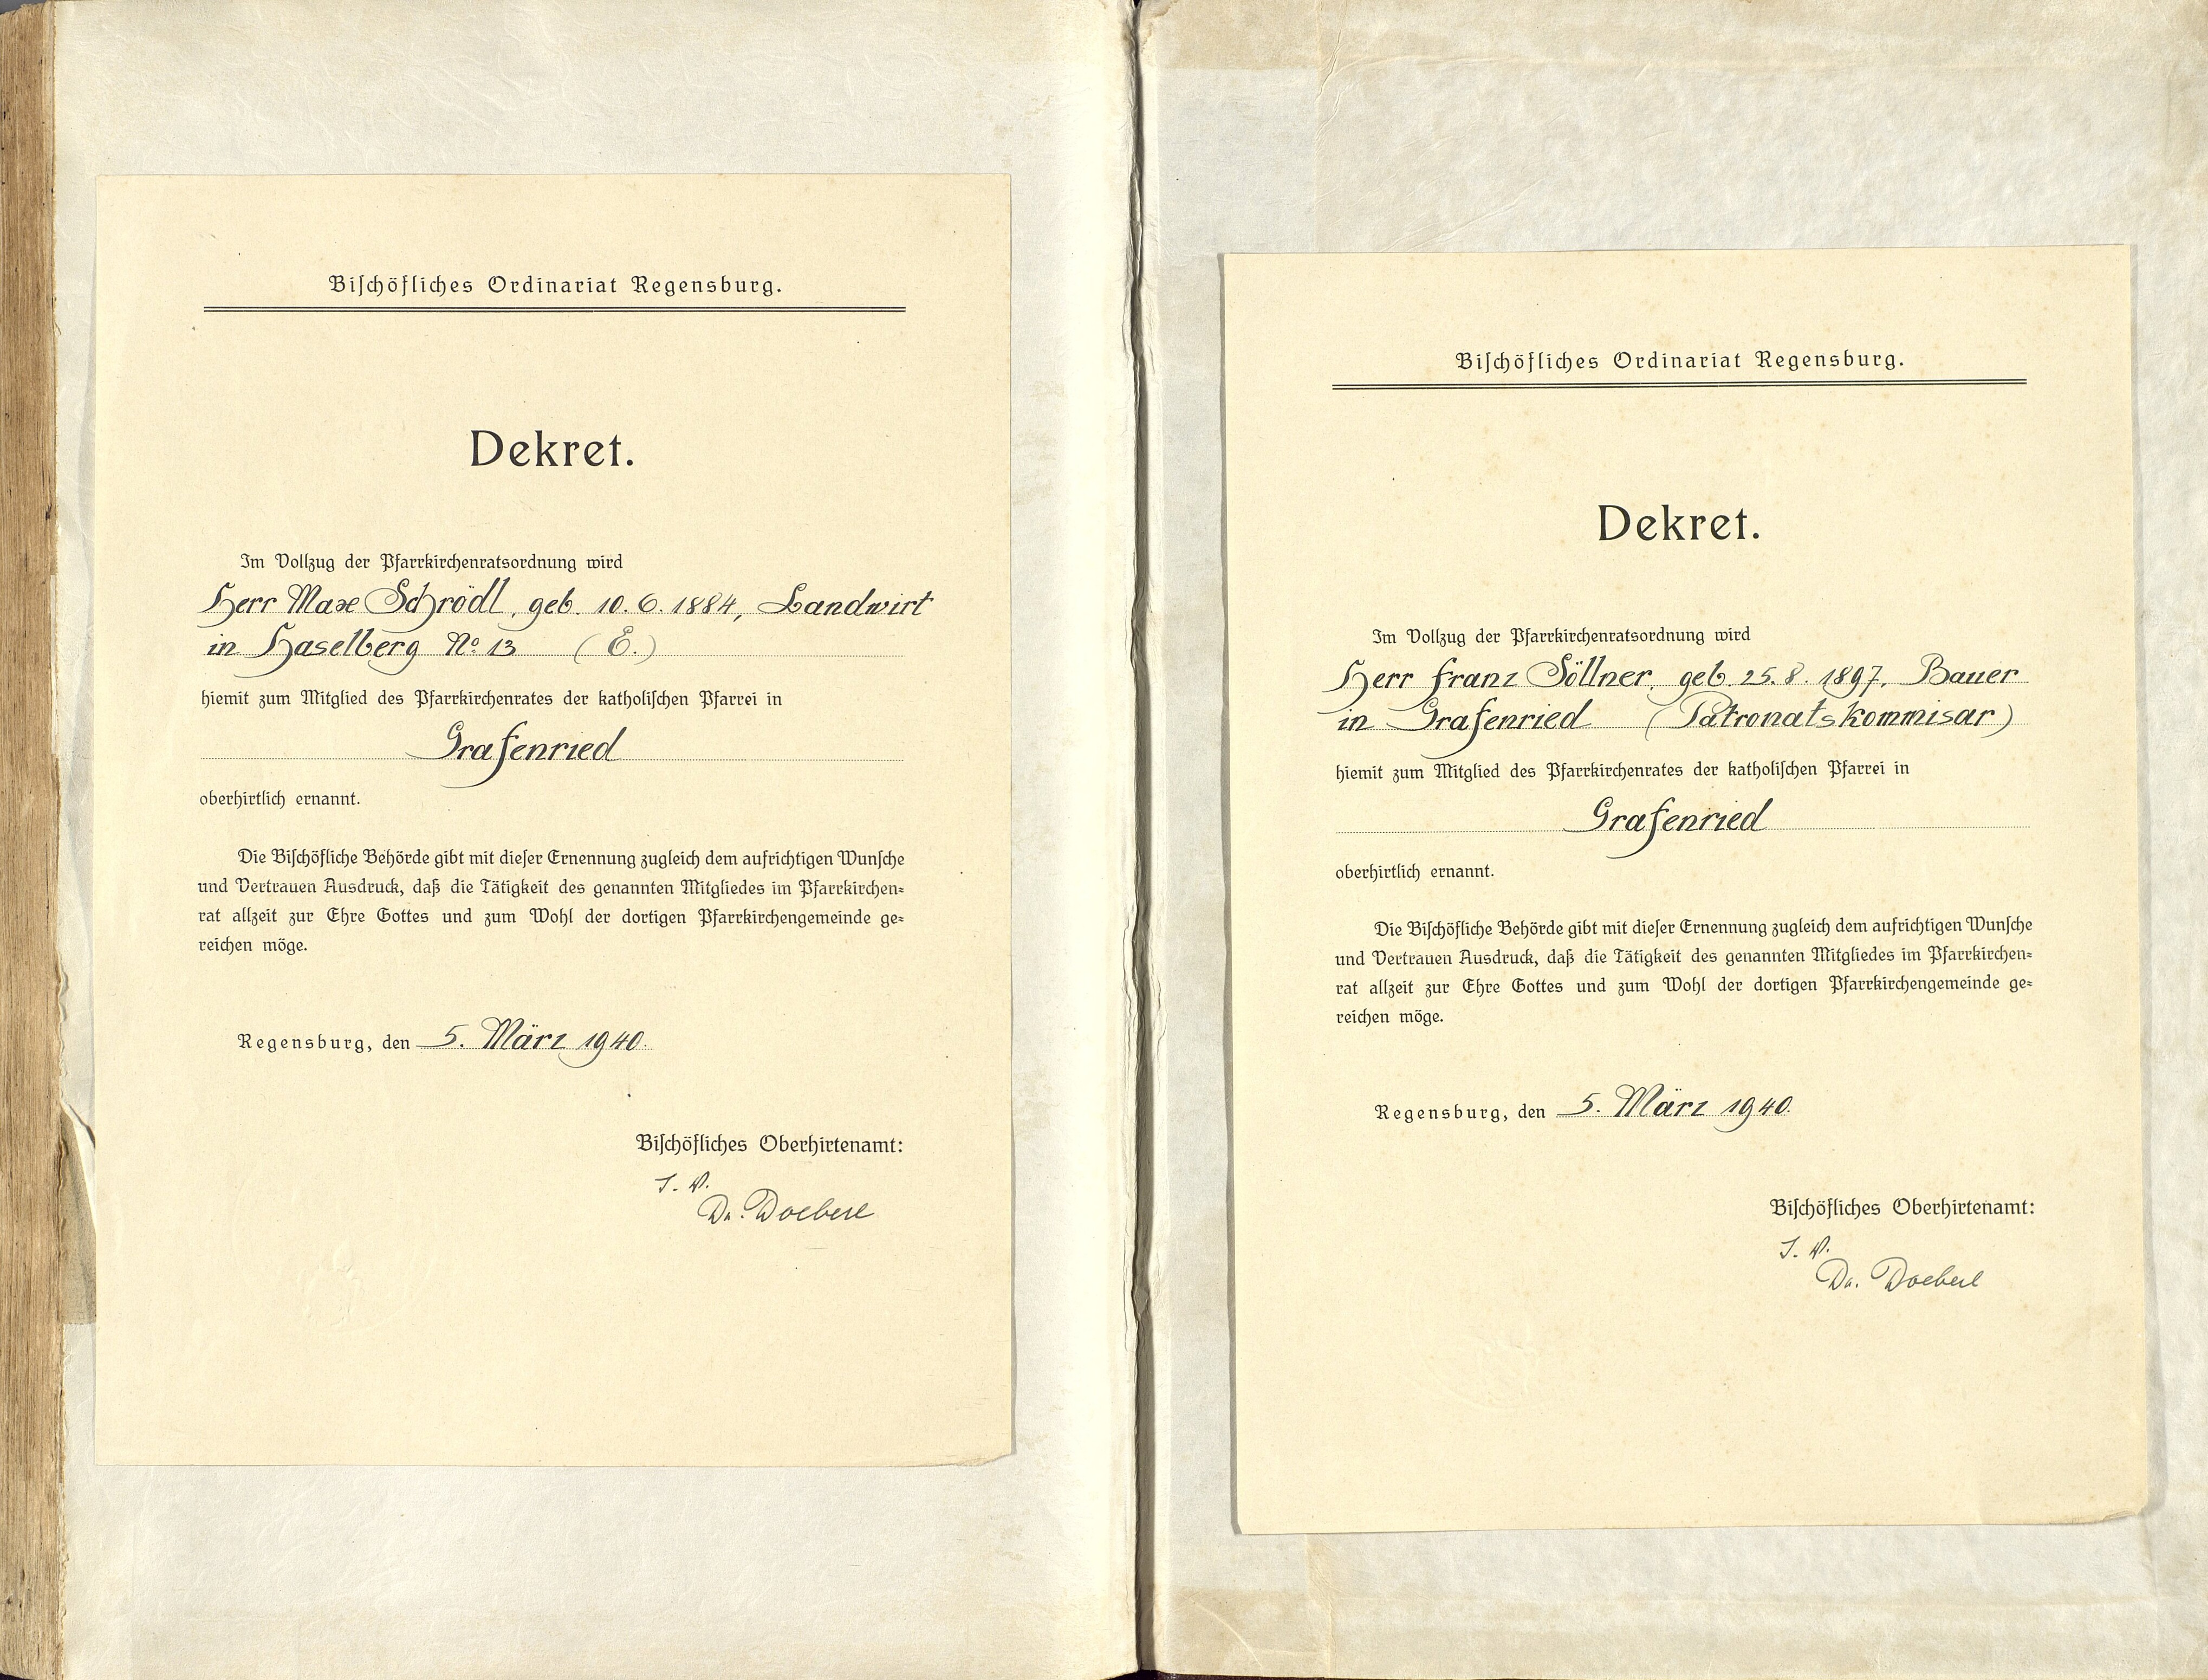 Bischöfliches Ordinariat Regensburg.
Dekret.
Im Vollzug der Pfarrkirchenratsordnung wird
Herr Max Schrödl, geb. 10. 6. 1884, Landwirt
in Haselberg No 13 (E.)
hiemit zum Mitglied des Pfarrkirchenrates der katholischen Pfarrei in
Grafenried
oberhirtlich ernannt.
Die Bischöfliche Behörde gibt mit dieser Ernennung zugleich dem aufrichtigen Wunsche
und Vertrauen Ausdruck, daß die Tätigkeit des genannten Mitgliedes im Pfarrkirchen=
rat allzeit zur Ehre Gottes und zum Wohl der dortigen Pfarrkirchengemeinde ge=
reichen möge.
Regensburg, den 5. März 1940.
Bischöfliches Oberhirtenamt:
I. V.
Dr. Doeberl
Bischöfliches Ordinariat Regensburg.
Dekret.
Im Vollzug der Pfarrkirchenratsordnung wird
Herr Franz Söllner, geb. 25. 8. 1897, Bauer
in Grafenried (Patronatskommisar)
hiemit zum Mitglied des Pfarrkirchenrates der katholischen Pfarrei in
Grafenried
oberhirtlich ernannt.
Die Bischöfliche Behörde gibt mit dieser Ernennung zugleich dem aufrichtigen Wunsche
und Vertrauen Ausdruck, daß die Tätigkeit des genannten Mitgliedes im Pfarrkirchen=
rat allzeit zur Ehre Gottes und zum Wohl der dortigen Pfarrkirchengemeinde ge=
reichen möge.
Regensburg, den 5. März 1940.
Bischöfliches Oberhirtenamt:
I. V.
Dr. Doeberl